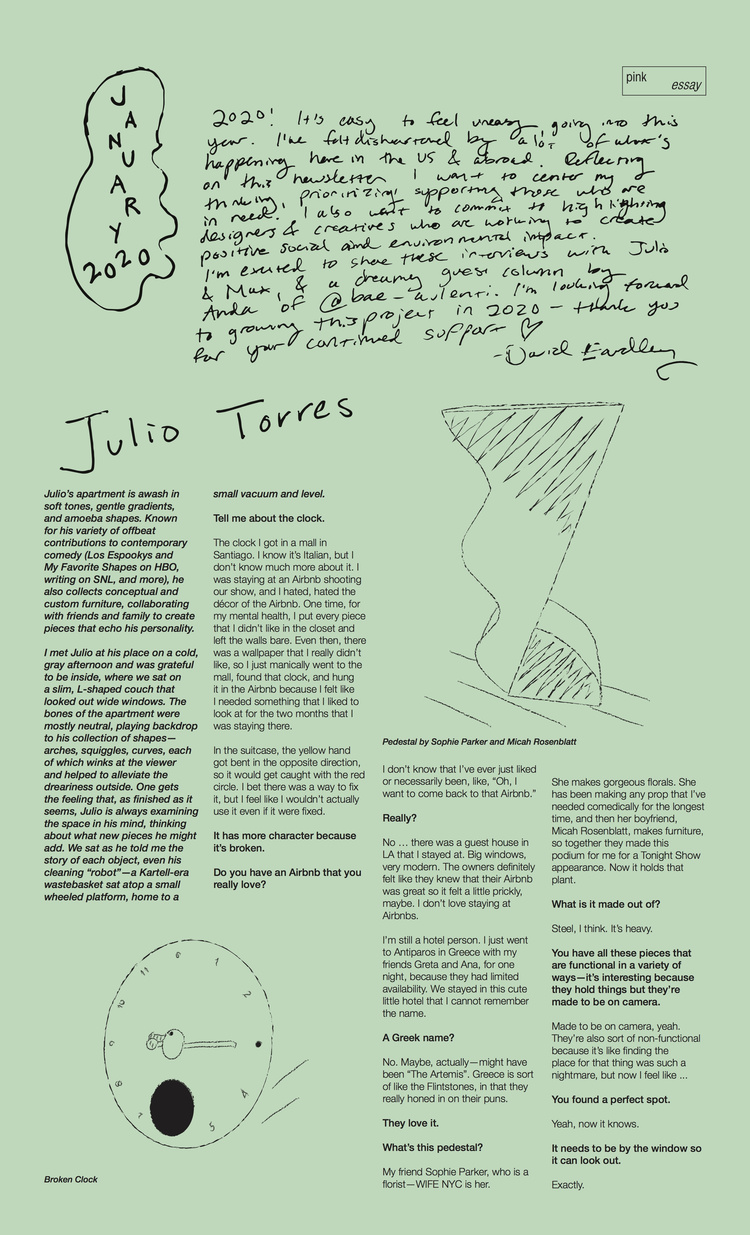 pink
essay
JANUARY
2020
2020! It's easy to feel uneasy going into this
year. I've felt disheartened by a lot of what's
happening here in the US & abroad. Reflecting
on this newsletter I want to center my
thinking, prioritizing, supporting those who are
in need. I also want to commit to highlighting
designers & creatives who are working to create
positive social and environmental impact.
I'm excited to share these interviews with Julio
& Max, & a dreamy guest column by
Anda of @bae-aulenti. I'm looking forward
to growing this project in 2020 – thank you
for your continued support ♡
-David Eardley
Julio Torres
Julio's apartment is awash in
soft tones, gentle gradients,
and amoeba shapes. Known
for his variety of offbeat
contributions to contemporary
comedy (Los Espookys and
My Favorite Shapes on HBO,
writing on SNL, and more), he
also collects conceptual and
custom furniture, collaborating
with friends and family to create
pieces that echo his personality.
I met Julio at his place on a cold,
gray afternoon and was grateful
to be inside, where we sat on
a slim, L-shaped couch that
looked out wide windows. The
bones of the apartment were
mostly neutral, playing backdrop
to his collection of shapes—
arches, squiggles, curves, each
of which winks at the viewer
and helped to alleviate the
dreariness outside. One gets
the feeling that, as finished as it
seems, Julio is always examining
the space in his mind, thinking
about what new pieces he might
add. We sat as he told me the
story of each object, even his
cleaning “robot”—a Kartell-era
wastebasket sat atop a small
wheeled platform, home to a
small vacuum and level.
Tell me about the clock.
The clock I got in a mall in
Santiago. I know it's Italian, but I
don't know much more about it. I
was staying at an Airbnb shooting
our show, and I hated, hated the
décor of the Airbnb. One time, for
my mental health, I put every piece
that I didn't like in the closet and
left the walls bare. Even then, there
was a wallpaper that I really didn't
like, so I just manically went to the
mall, found that clock, and hung
it in the Airbnb because I felt like
I needed something that I liked to
look at for the two months that I
was staying there.
In the suitcase, the yellow hand
got bent in the opposite direction,
so it would get caught with the red
circle. I bet there was a way to fix
it, but I feel like I wouldn't actually
use it even if it were fixed.
It has more character because
it's broken.
Do you have an Airbnb that you
really love?
Pedestal by Sophie Parker and Micah Rosenblatt
I don't know that I've ever just liked
or necessarily been, like, “Oh, I
want to come back to that Airbnb.”
Really?
No … there was a guest house in
LA that I stayed at. Big windows,
very modern. The owners definitely
felt like they knew that their Airbnb
was great so it felt a little prickly,
maybe. I don't love staying at
Airbnbs.
I'm still a hotel person. I just went
to Antiparos in Greece with my
friends Greta and Ana, for one
night, because they had limited
availability. We stayed in this cute
little hotel that I cannot remember
the name.
A Greek name?
No. Maybe, actually—might have
been “The Artemis”. Greece is sort
of like the Flintstones, in that they
really honed in on their puns.
They love it.
What's this pedestal?
My friend Sophie Parker, who is a
florist—WIFE NYC is her.
She makes gorgeous florals. She
has been making any prop that I've
needed comedically for the longest
time, and then her boyfriend,
Micah Rosenblatt, makes furniture,
so together they made this
podium for me for a Tonight Show
appearance. Now it holds that
plant.
What is it made out of?
Steel, I think. It's heavy.
You have all these pieces that
are functional in a variety of
ways—it's interesting because
they hold things but they're
made to be on camera.
Made to be on camera, yeah.
They're also sort of non-functional
because it's like finding the
place for that thing was such a
nightmare, but now I feel like ...
You found a perfect spot.
Yeah, now it knows.
It needs to be by the window so
it can look out.
Exactly.
11
1
2
4
5
7
Broken Clock